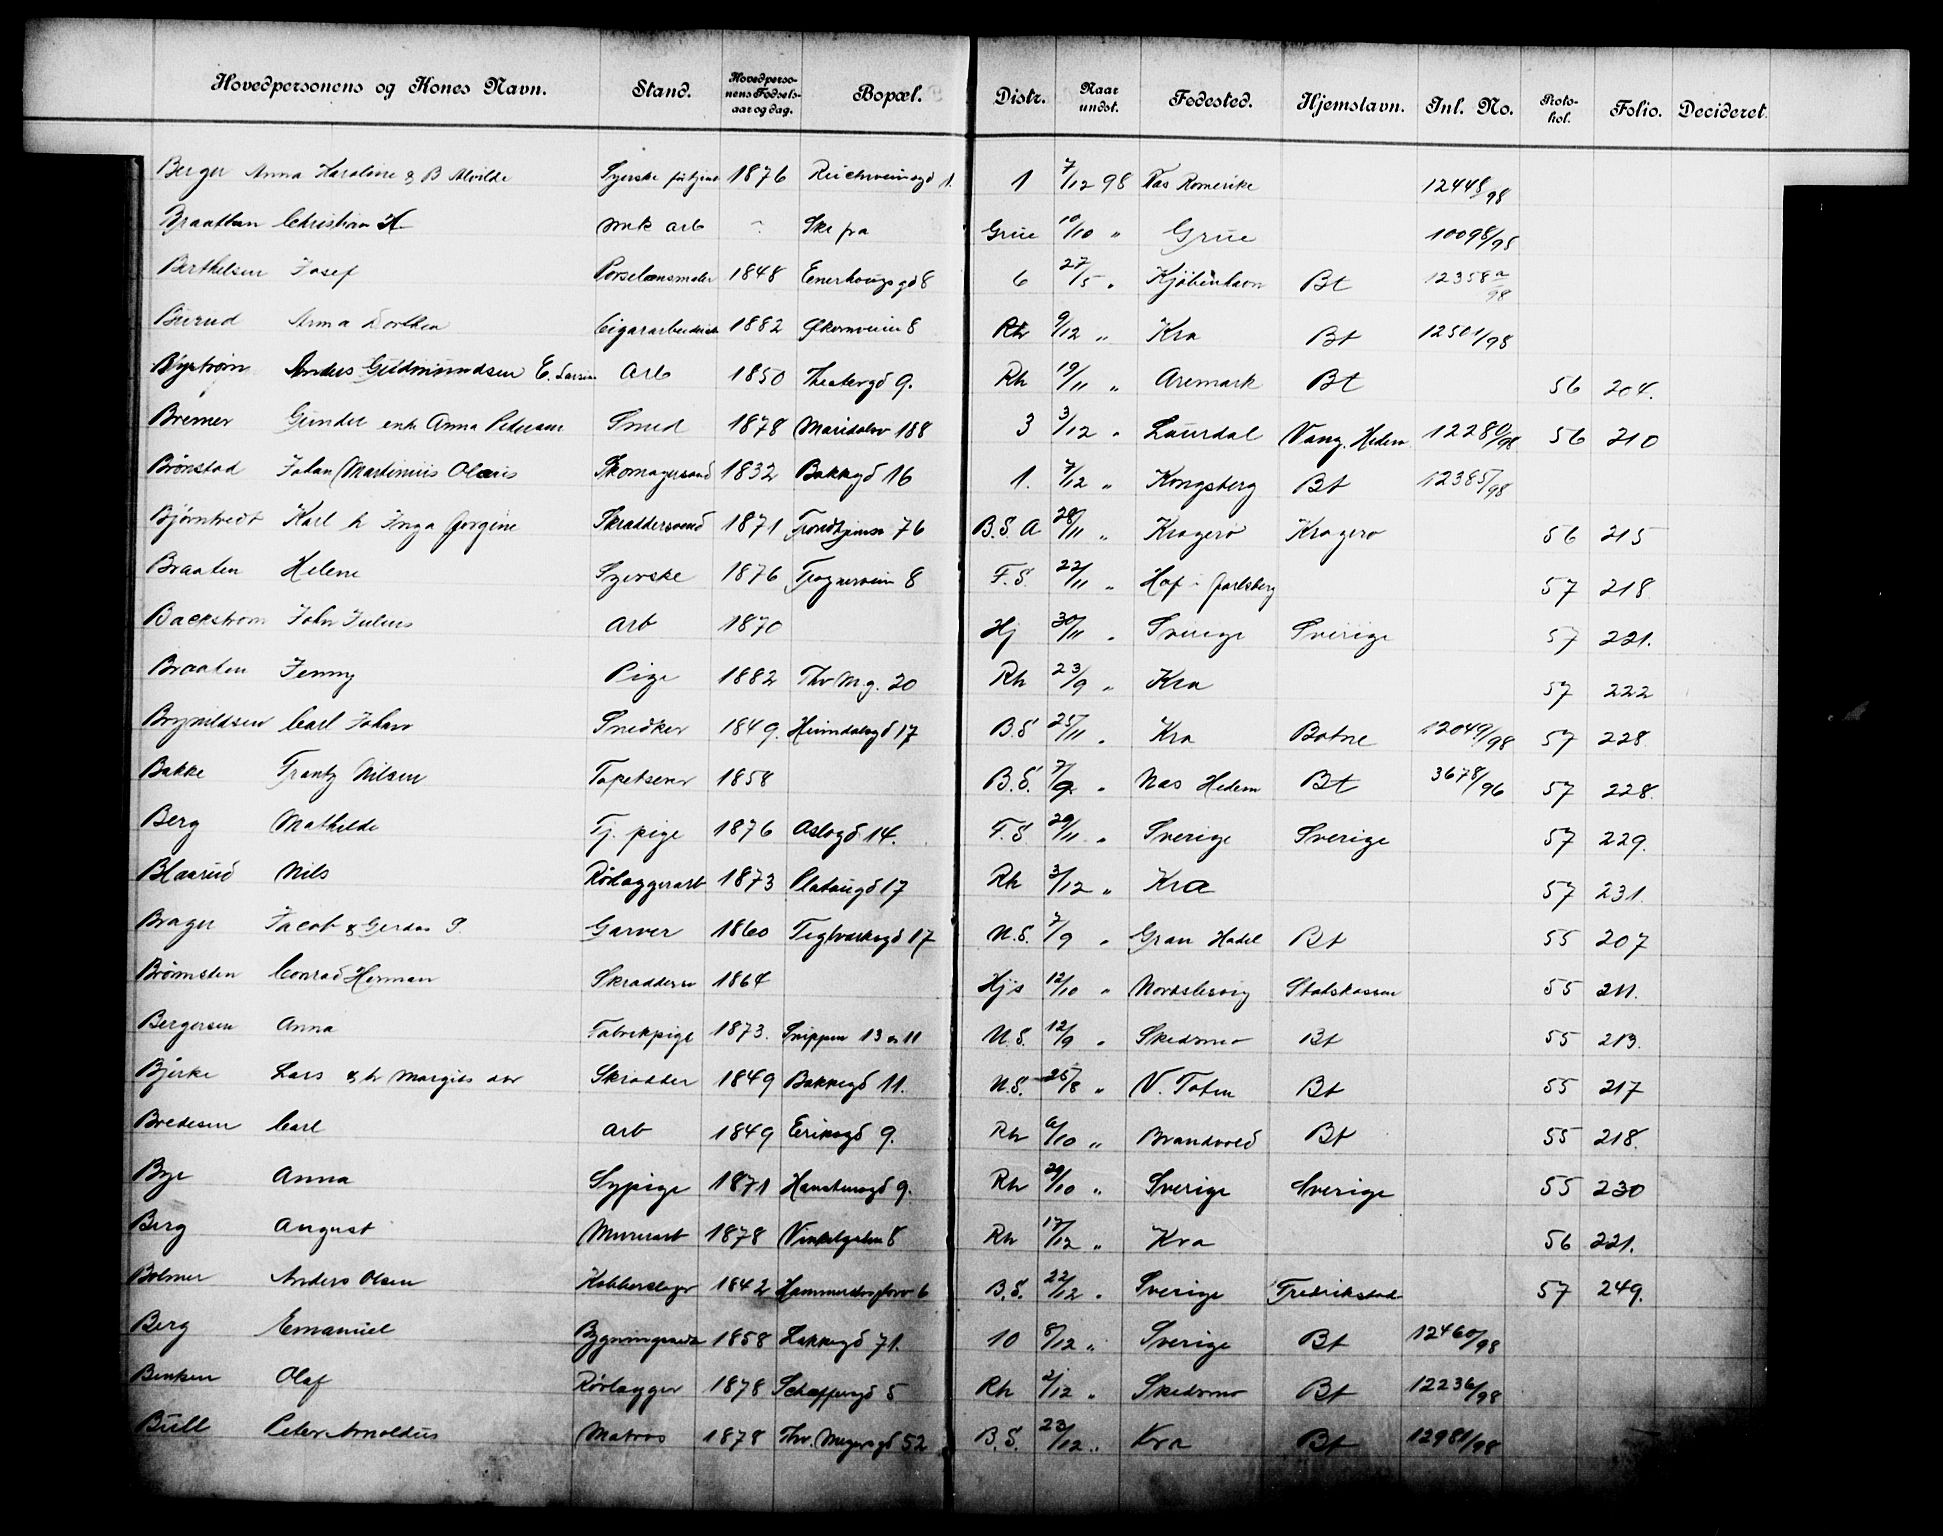 Hovedpersonens og Kones Navn. Stand. Hovedperso-nens Fødsels-aar og dag. Bopæl. Distr. Naar undst. Fødested. Hjemstavn. Inl. No. Proto-kol. Folio. Decideret.
Berger Anna Karoline & B Alvilde Syerske 1876 1. 1 7/12 98 Næs Romerike 12448/98
Braathen Christian H. mk arb Ske fra Grue 10/10 " Grue 10098/98
Berthelsen Josef Porselænsmaler 1848 Enerhougsgd 8 6 27/5 " Kjøbenhavn Bt 12358a/98
Burud Anna Dorthea Cigararbeiderske 1882 Økernveien 8 Rh 9/12 " Kra Bt 12501/98
Bystrøm Anders Gudmundsen E. Larsen Arb 1850 Theatergd 9. Rh 19/11 " Aremark Bt 56 204.
Bremer Gunder enk Anna Pedersen Smed 1878 Maridalsv 188 3 3/12 " Laurdal Vang. Hedem 12280/98 56 210
Brønstad Johan Martinius Olaus Skomagersvend 1832 Bakkegd 16 1. 7/12 " Kongsberg Bt 12385/98
Bjørntvedt Karl h Inga Jorgine Skræddersvend 1871 Trondhjemsv 76 B.S. A 28/11 " Kragerø Kragerø 56 215
Braaten Helene Syerske 1876 Frognerveien 8 F.S. 22/11 " Hof i Jarlsberg 57 218
Backstrøm John Julius Arb 1870 Hj 30/11 " Sverige Sverige 57 221.
Braaten Jenny Pige 1882 Thv M.g. 20 Rh 23/9 " Kra 57 222
Brynildsen Carl Johan Snedker 1849. Heimdalsgd 17 B.S 25/11 " Kra Botne 12049/98 57 228
Bakke Frantz Nilsen Tapetserer 1858 B.S. 7/9 " Næs Hedem Bt 3678/96 57 228.
Berg Mathilde Tj. pige 1876 Oslogd 14. F.S. 29/11 " Sverige Sverige 57 229.
Blaarud Nils Rørlæggerarb 1873 Platougd 17 Rh 3/12 " Kra 57 231.
Brager Jacob & Gerdas P. Garver 1860 Teglverksgd 17 N.S. 7/9 " Gran Hadel Bt 55 207
Brømsten Conrad Herman Skræddersv 1864 Hjs 12/10 " Nordslesvig Statskassen 55 211.
Bergersen Anna Fabrikpige 1873. Snippen 13 & 11 N.S. 12/9 " Skedsmo Bt 55 213.
Bjerke Lars & h Margits Skrædder 1849 Bakkegd 11. N.S. 25/8 " V. Toten Bt 55 217
Bredesen Carl Arb 1849 Eriksgd 9. Rh 6/10 " Brandvold Bt 55 218.
Bye Anna Sypige 1871 Hansteensgd 9. Rh 29/10 " Sverige Sverige 55 230
Berg August Murerarb 1878 Vinkelgaden 8 Rh 17/12 " Kra 56 221.
Bolmer Anders Olsen Kobberslager 1842 Hammersborgtorv 6 B.S. 22/12 " Sverige Fredrikstad 57 249.
Berg Emanuel 1858 Hakkegd 71. 10 8/12 " Sverige Bt 12460/98
Bentsen Olaf Rørlægger 1878 Schæffersgd 5 Rh 2/12 " Skedsmo Bt 12236/98
Bull Peter Arnoldus Matros 1878 Thv. Meyersgd 52 B.S. 23/12 " Kra Bt 12981/98